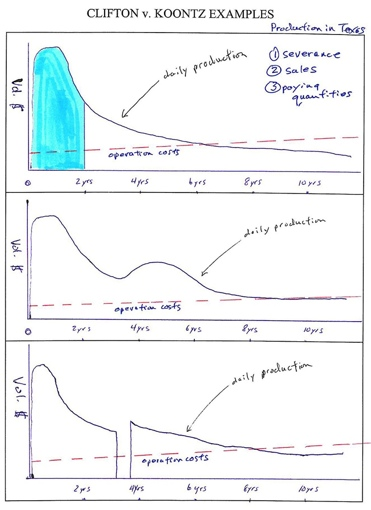 CLIFTON v. KOONTZ EXAMPLES
Production in Texas
① severence
② sales
③ paying
quantities
daily production
Vol. $
operation costs
0 2yrs 4yrs 6yrs 8yrs 10yrs
daily production
Vol. $
operation costs
0 2yrs 4yrs 6yrs 8yrs 10yrs
daily production
Vol. $
operation costs
2yrs 4yrs 6yrs 8yrs 10yrs